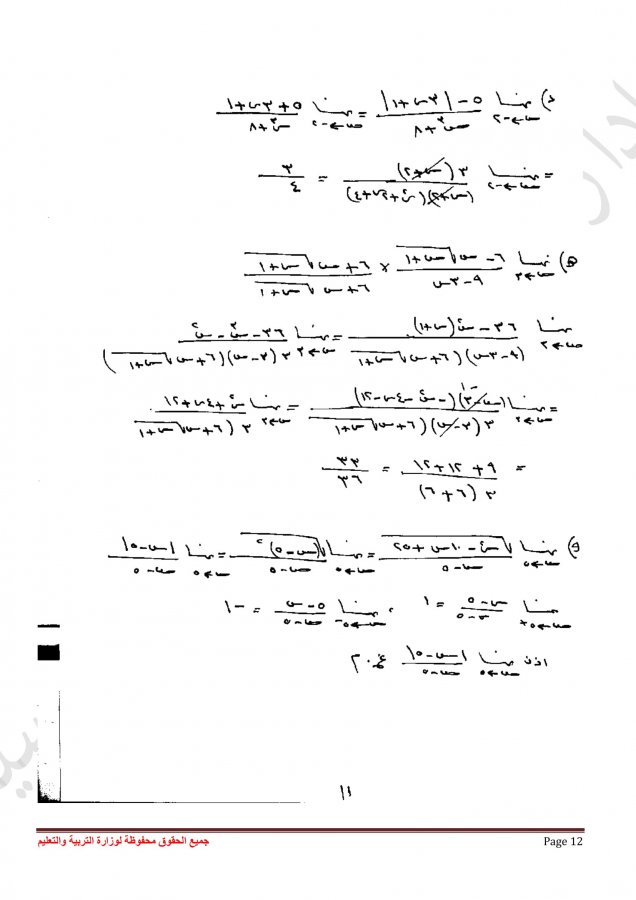 د) نهـــا س←-٢ (٥ - |٣س+١|)/(س٣+٨) = نهـــا س←-٢ (٥+٣س+١)/(س٣+٨)
= نهـــا س←-٢ ٣(س+٢)/((س+٢)(س٢+٢س+٤)) = ٣/٤
هـ) نهـــا س←٣ (٦ - س√(س+١))/(٩-٣س) × (٦+س√(س+١))/(٦+س√(س+١))
نهـــا س←٣ (٣٦ - س٢(س+١))/((٩-٣س)(٦+س√(س+١))) = نهـــا س←٣ (٣٦ - س٣ - س٢)/(٣(٣-س)(٦+س√(س+١)))
= نهـــا س←٣ (س-٣)(-س٢-٤س-١٢)/(٣(٣-س)(٦+س√(س+١))) = نهـــا س←٣ (س٢+٤س+١٢)/(٣(٦+س√(س+١)))
= (٩+١٢+١٢)/(٣(٦+٦)) = ٣٣/٣٦
و) نهـــا س←٥ √(س٢-١٠س+٢٥)/(س-٥) = نهـــا س←٥ √((س-٥)٢)/(س-٥) = نهـــا س←٥ |س-٥|/(س-٥)
نهـــا س←٥+ (س-٥)/(س-٥) = ١ ، نهـــا س←٥- (٥-س)/(س-٥) = -١
اذن نهـــا س←٥ |س-٥|/(س-٥) غ.م
١١
جميع الحقوق محفوظة لوزارة التربية والتعليم
Page 12